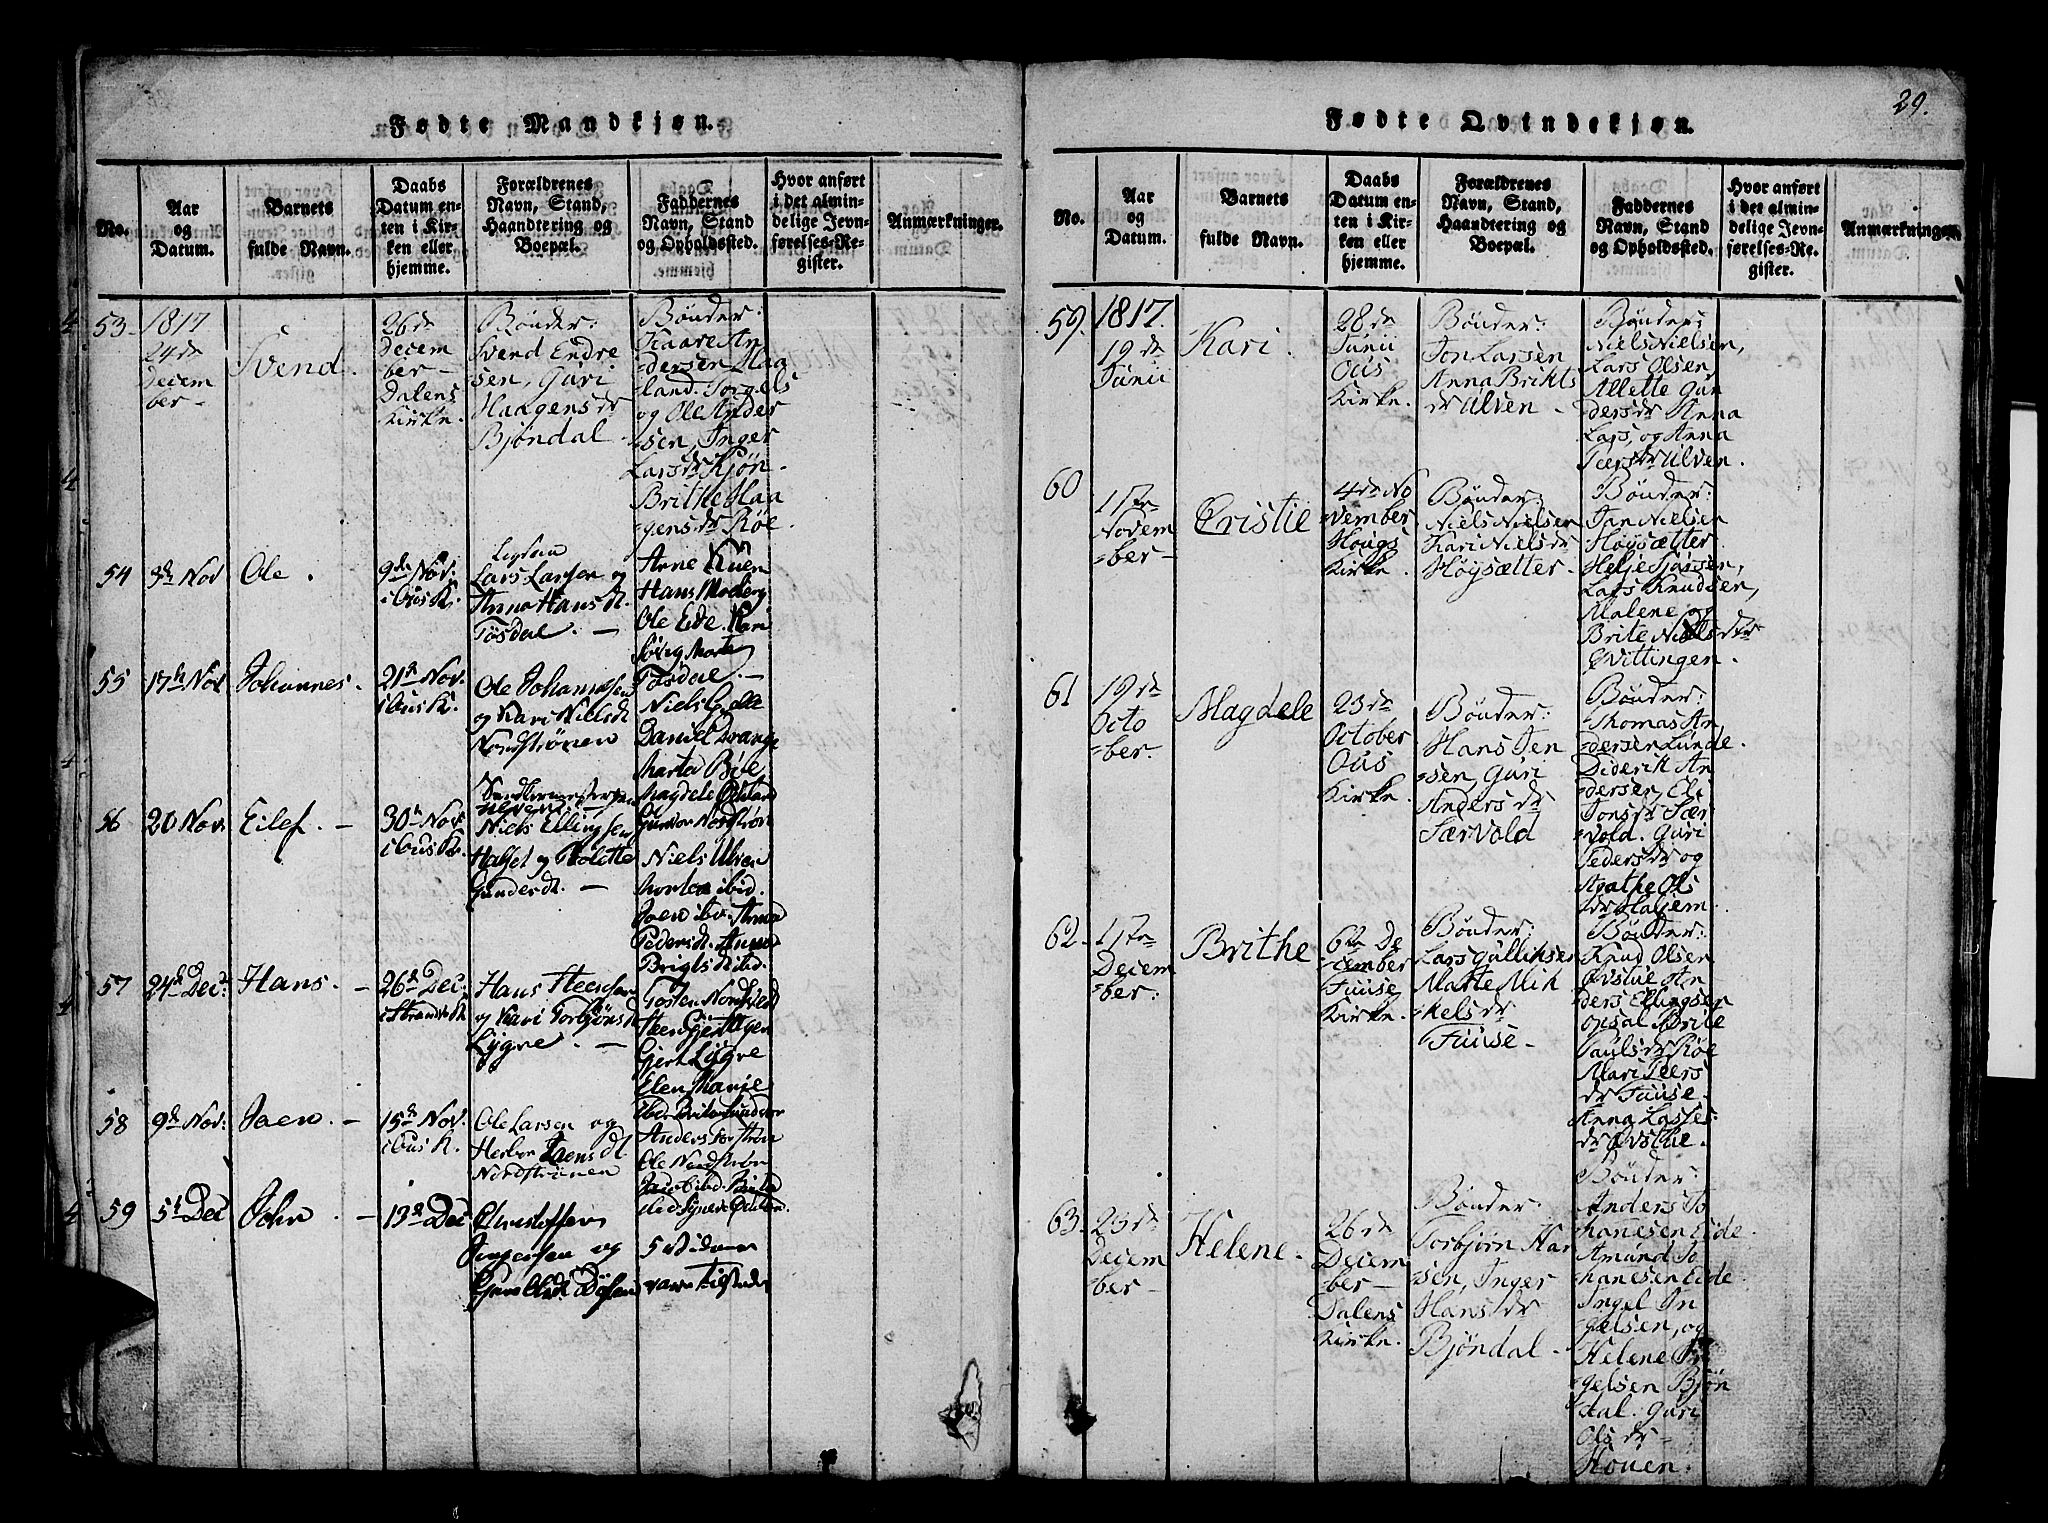 29.
Fødte Mandkjøn.
No.
Aar
og
Datum.
Barnets
fulde Navn.
Daabs
Datum en-
ten i Kir-
ken eller
hjemme.
Forældrenes
Navn, Stand,
Haandtering og
Boepæl.
Faddernes
Navn, Stand
og Opholdssted.
Hvor anført
i det almin-
delige Jevn-
førelses-Re-
gister.
Anmærkninger.
53.
1817
24de
Decem
ber -
Svend.
26de
Decem
ber -
Dalens
Kirke.
Bönder:
Svend Endre
sen, Guri
Haagensdr
Bjöndal.
Bönder:
Kaare An
dersen Haa
land. Torgels
og Ole Ander
sen, Inger
Larsdr Kjön-
Brithe Haa
gensdr Röe.
54
3de Nov
Ole.
9de Nov:
i Ous K.
Lars Larsen og
Anna Hansdt.
Tösdal. -
Arne
Hans Moberg
Ole Eide. Kari
Marta
Tösdal. -
55
17de Nov
Johannes.
21de Nov.
i Ous K.
Ole Johannessen
og Kari Nielsdt
Nordströnen
Niels
Daniel Drange
Marta Böe
Magdele
56
20 Nov:
Eilef. -
30te Nov
i Ous K.
Niels Ellingsen
og
Gundersdt. -
Nordströn
Niels Ulven
ibid.
Joen ibid. Anna
Pedersdt. Anna
Brigtsdt ibid.
57
24de Dec:
Hans. -
26de Dec.
i Strandv. K
Hans Steensen
og Kari Torbjönsdt
Lygre. -
Gjert Lygre
Elen Marie
58
9de Nov:
Joen. -
15de Nov.
i Ous K.
Ole Larsen og
Joensdt.
Nordströnen
ibid.
Anders
Ole Nordströn
59
5te Dec
John -
13de Dec
Christoffer
Jürgensen og
5 Vidner
vare tilstede
Fødte Qvindekjøn.
No.
Aar
og
Datum.
Barnets
fulde Navn.
Daabs
Datum en-
ten i Kir-
ken eller
hjemme.
Forældrenes
Navn, Stand,
Haandtering og
Boepæl.
Faddernes
Navn, Stand
og Opholdsted.
Hvor anført
i det almin-
delige Jevn-
førelses-Re-
gister.
Anmærkninger.
59.
1817.
19de
Junii
Kari.
28de
Junii
Ous
Kirke.
Bönder:
Jon Larsen
Anna Brikts
dr Ulven -
Bönder:
Niels Nielsen,
Lars Olsen,
Allette Gun
dersdr Anna
Lars, og Anna
Peersdr Ulven.
60
1ste
Novem
ber -
Cristie
4de No
vember
Hougs
Kirke.
Bönder:
Niels Nielsen
Kari Nielsdr
Höysætter.
Bönder:
Jan Nielsen
Höysætter
Helje Sjursen,
Lars Knudsen,
Malene og
Brite Nielsdtr
Qvittingen.
61
19de
Octo
ber.
Magdele
23de
October
Ous
Kirke.
Bönder:
Hans Jen
sen, Guri
Andersdr
Særvold
Bönder:
Thomas An
dersen Lunde.
Diderik An
dersen, Eli
Jonsdr Sær
vold. Guri
Pedersdr og
Agathe Ols
dr Haljem.
62.
1ste
Decem
ber:
Brithe
6te De
cember
Fuuse
Kirke.
Bönder:
Lars Gulliksen
Marte Mik
kelsdr
Fuuse -
Bönder:
Knud Olsen
Övstue An
ders Ellingsen
Opsal Brite
Paulsdr Röe
Mari Peers
dr Fuuse.
Anna Lasses
dr Övsthe.
63.
23de
Decem
ber -
Helene.
26de
Decem
ber -
Dalens
Kirke.
Bönder:
Torbjörn Han
sen, Inger
Hansdr
Bjöndal -
Bönder:
Anders Jo
hanesen Eide.
Amund Jo
hanesen Eide
Ingel In
gelsen, og
Helene In
gelsen Bjön
dal. Guri
Olsdr -
Houen.